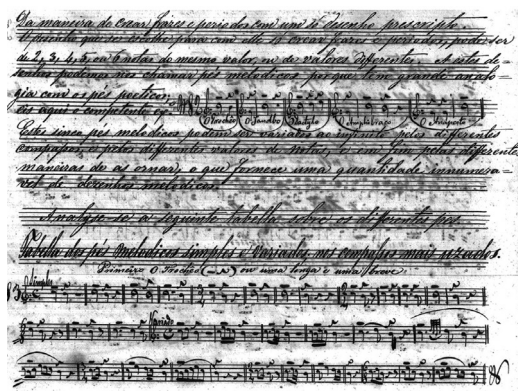 Da maneira de crear frases e periodos com um desenho prescripto.
O desenho que se escolhe para com elle crear frases e periodos, pode ser
de 2, 3, 4, 5, ou 6 notas do mesmo valor, ou de valores differentes. A estes de=
senhos podemos nós chamar pés melodicos, porque tem grande analo=
gia com os pés poeticos.
O Trocheo O Jambo O Amphibraco O Anapesto
Estes cinco pés melodicos podem ser variados ao infinito pelos differentes
compassos, e pelos differentes valores de notas, e em fim pelas differentes
maneiras de as ornar, o que fornece uma quantidade innumera=
vel de desenhos melodicos.
Analyse-se a seguinte tabella sobre os differentes pés.
Tabella dos pés Melodicos simples e Variados nos compassos mais uzados.
Primeiro O Trocheo ou uma longa e uma breve.
Simples
Variado